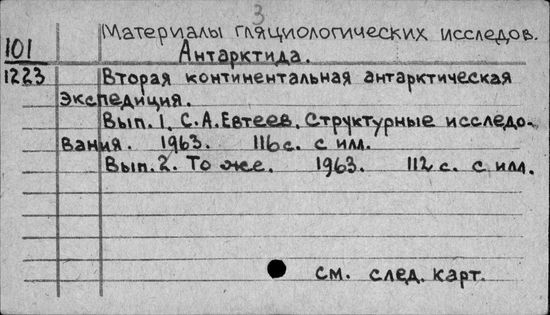 3
Материалы гляциологических исследов.
101 Антарктида.
1223 Вторая континентальная антарктическая
экспедиция.
Вып. 1. С.А.Евтеев. Структурные исследо-
вания. 1963. 116 с. с илл.
Вып. 2. То же. 1963. 112 с. с илл.
см. след. карт.